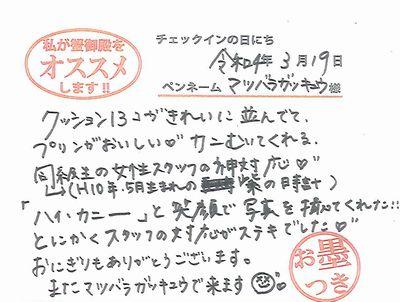 私が蟹御殿を
オススメ
します!!
チェックインの日にち
令和4年3月19日
ペンネーム マツバラガッキュウ様
クッション13コがきれいに並んでて、
プリンがおいしい♡カニむいてくれる、
同級生の女性スタッフの神対応♡
↳(H10年.5月生まれの 紫の時計)
「ハイ・カニー」と笑顔で写真を撮ってくれた!!
とにかくスタッフの対応がステキでした♡
おにぎりもありがとうございます。
またマツバラガッキュウで来ます
お墨
つき